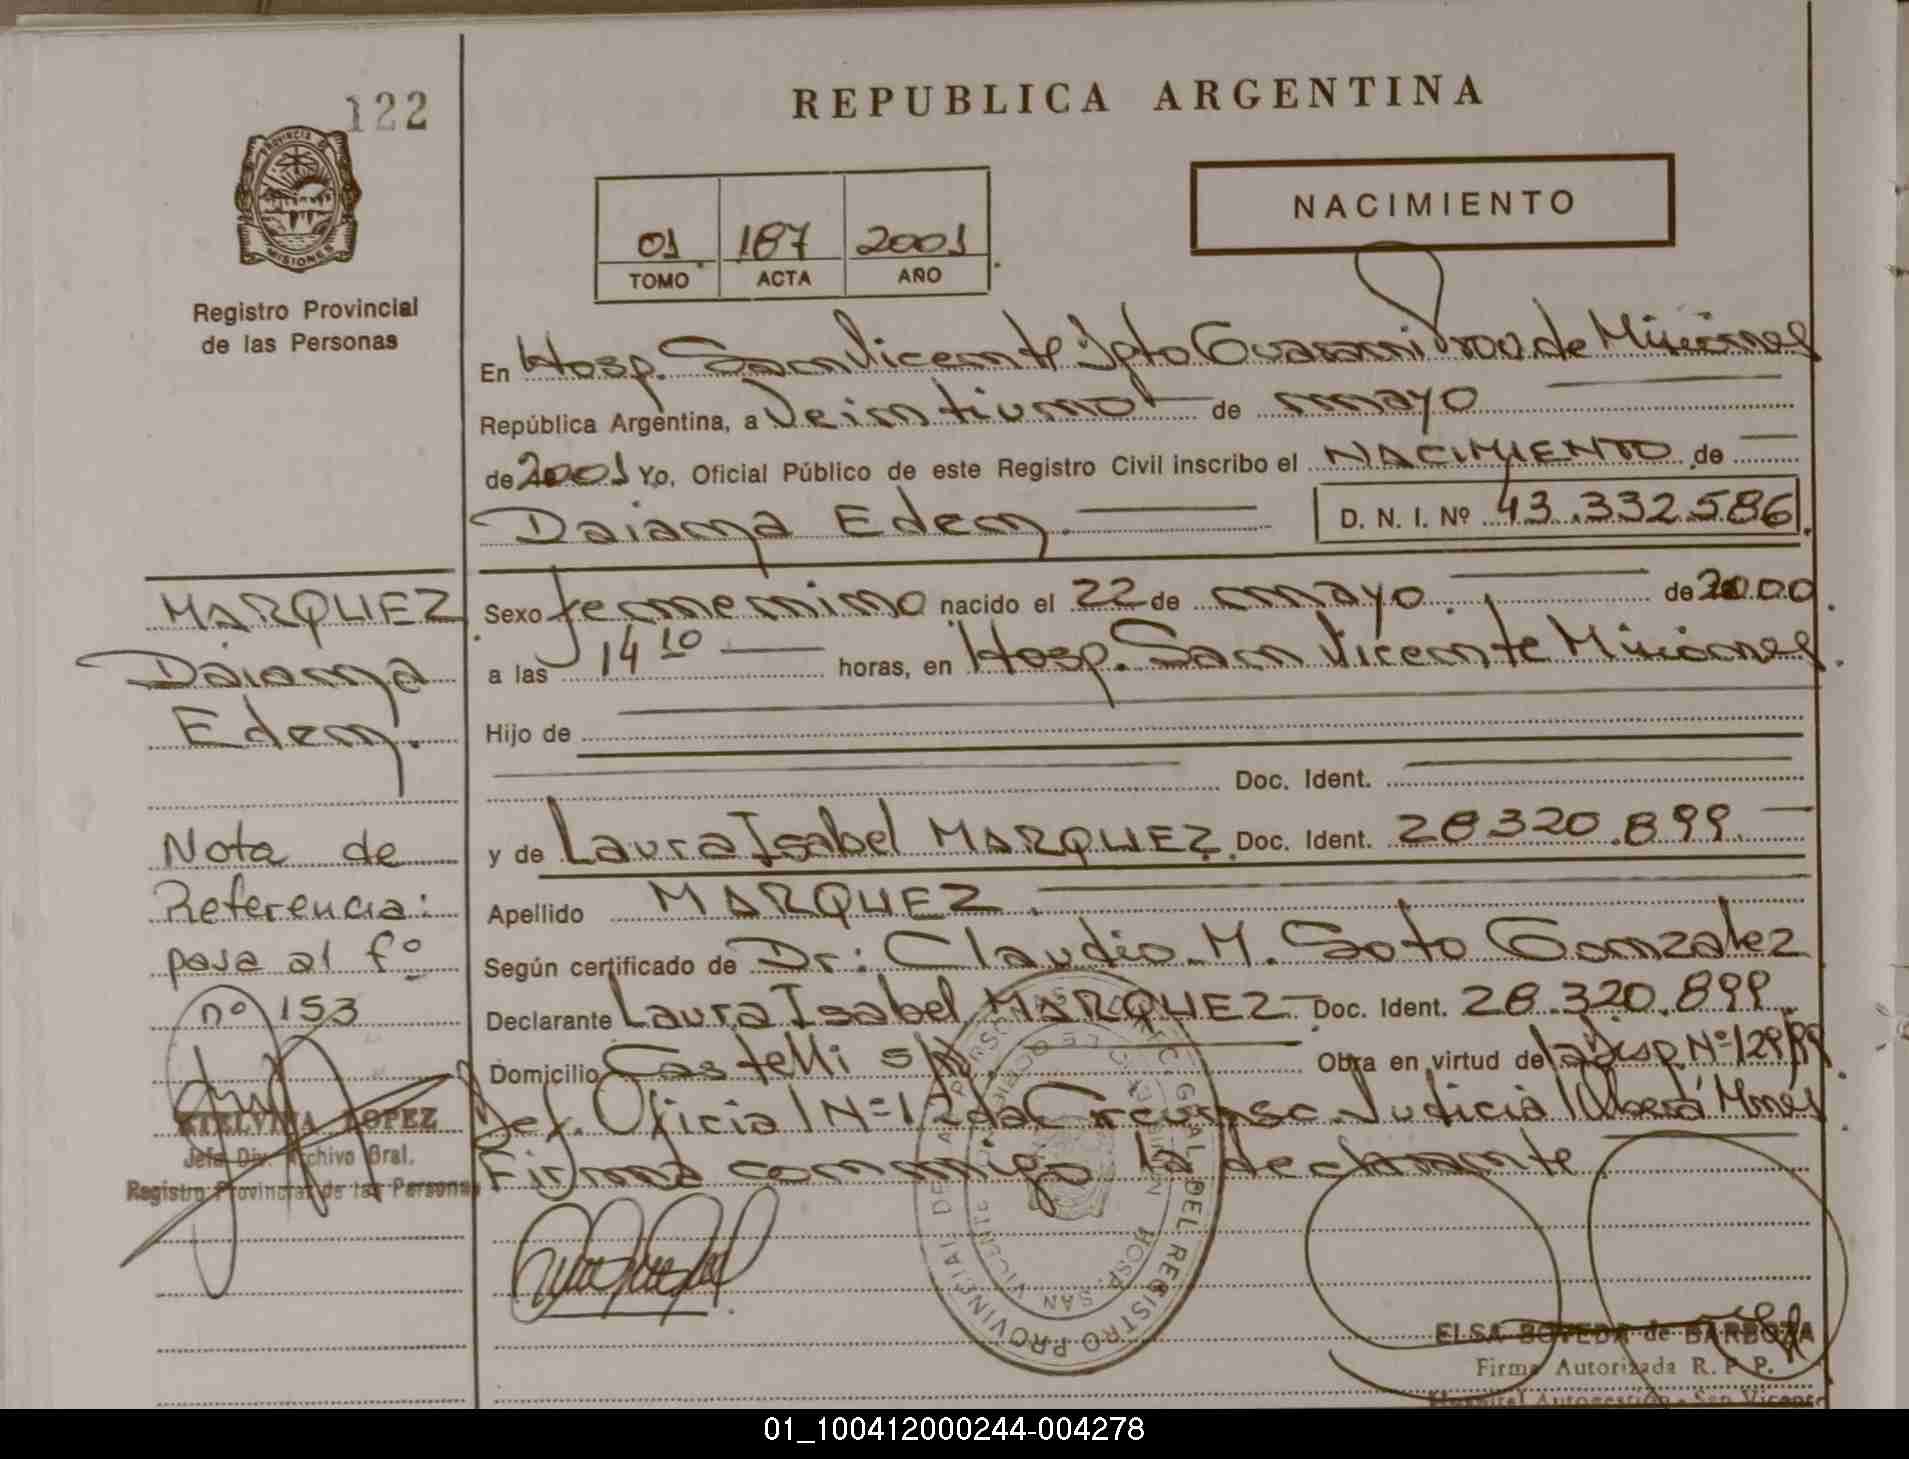 122
REPUBLICA ARGENTINA
PROVINCIA D
MISIONES
Registro Provincial
de las Personas
01 187 2001
TOMO ACTA AÑO
NACIMIENTO
En Hosp. San Vicente Dpto Guarani Prov. de Misiones
República Argentina, a Veintiuno de mayo
de 2001 Yo, Oficial Público de este Registro Civil inscribo el NACIMIENTO de
Daiana Edem. D. N. I. Nº 43.332.586
MARQUEZ
Daiana
Edem.
Sexo femenino nacido el 22 de mayo de 2000
a las 14 10 horas, en Hosp. San Vicente Misiones
Hijo de
Doc. Ident.
y de Laura Isabel MARQUEZ. Doc. Ident. 28.320.899
Apellido MARQUEZ
Según certificado de Dr: Claudio M. Soto Gonzalez
Declarante Laura Isabel MARQUEZ Doc. Ident. 28.320.899
Domicilio Castelli s/n Obra en virtud de la Disp. Nº 129/99
Def. Oficial Nº 1 2da Circunsc. Judicial Oberá Mnes
Firma conmigo la declarante
Nota de
Referencia:
pasa al fº
nº 153
ETELVINA LOPEZ
Jefa Div. Archivo Gral.
Registro Provincial de las Personas
HOSP. SAN VICENTE
ELSA BOVEDA de BARBOZA
Firma Autorizada R. P. P.
Hospital Autogestión - San Vicente
01_100412000244-004278